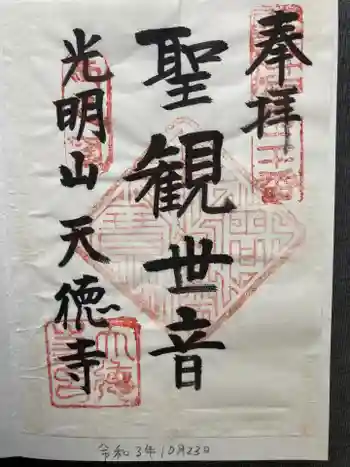 奉拝
聖観世音
光明山天徳寺
令和3年10月23日